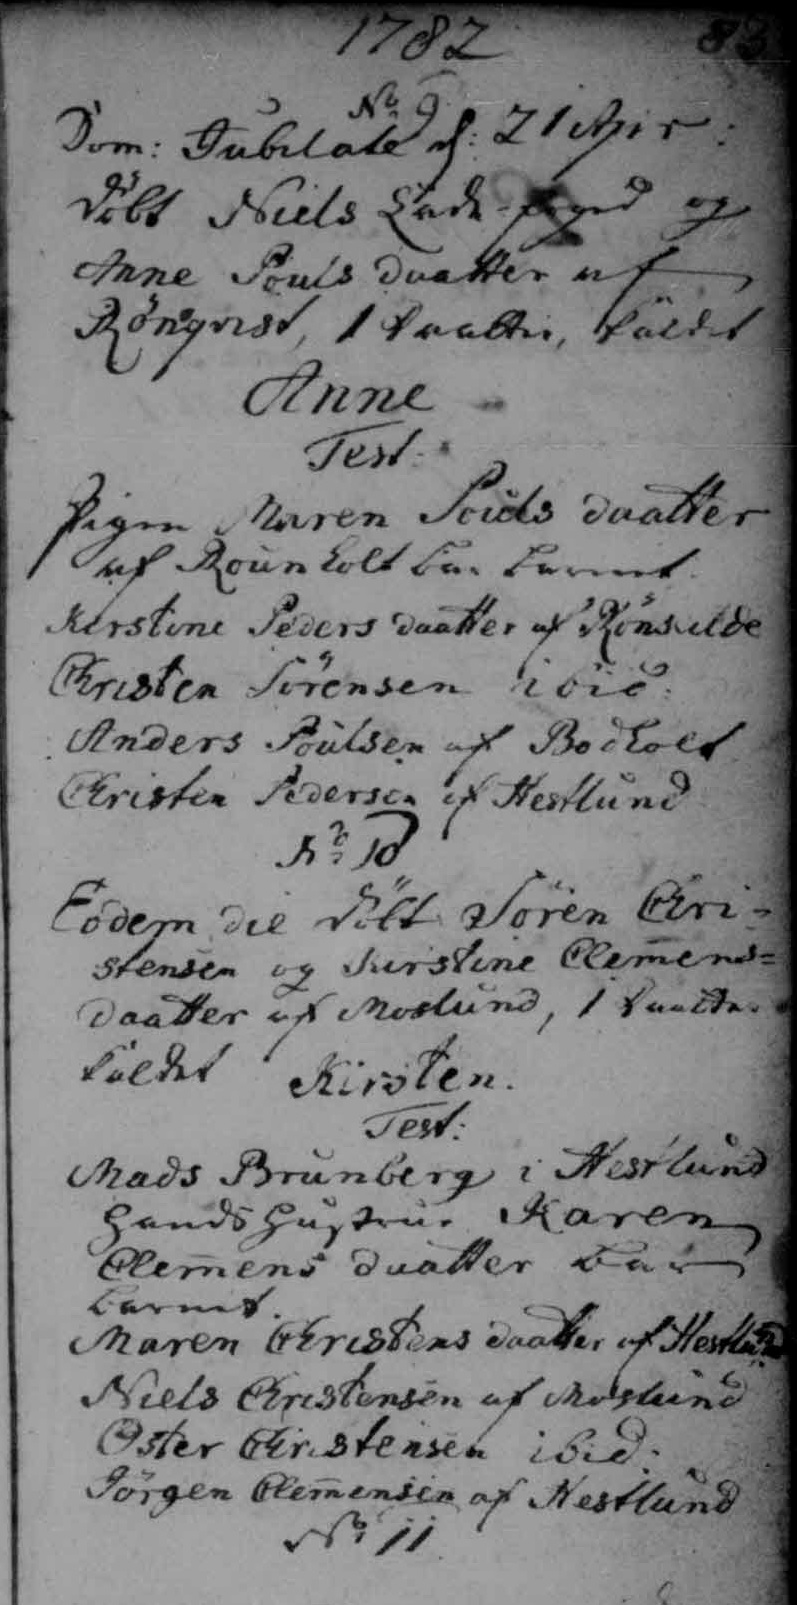 1782 83
No 9
Dom: Jubilate d: 21 Apr:
döbt Niels Lade-foged og
Anne Pouls daatter af
Rönqvist, 1 daatter, kaldet
Anne
Test:
Pigen Maren Pouls daatter
af Rounholt bar barnet.
Kirstine Peders daatter af Rönslelde
Christen Sörensen ibid:
Anders Poulsen af Bodholt
Christen Pedersen af Hestlund
No 10
Eodem die döbt Sören Chri-
stensen og Kirstine Clemens=
daatter af Moslund, 1 daatter
kaldet Kirsten.
Test:
Mads Brunberg i Hestlund
hands hustrue Karen
Clem̄ens daatter bar
barnet.
Maren Christens daatter af Hestlund
Niels Christensen af Moslund
Öster Christensen ibid.
Jörgen Clem̄ensen af Hestlund
No 11